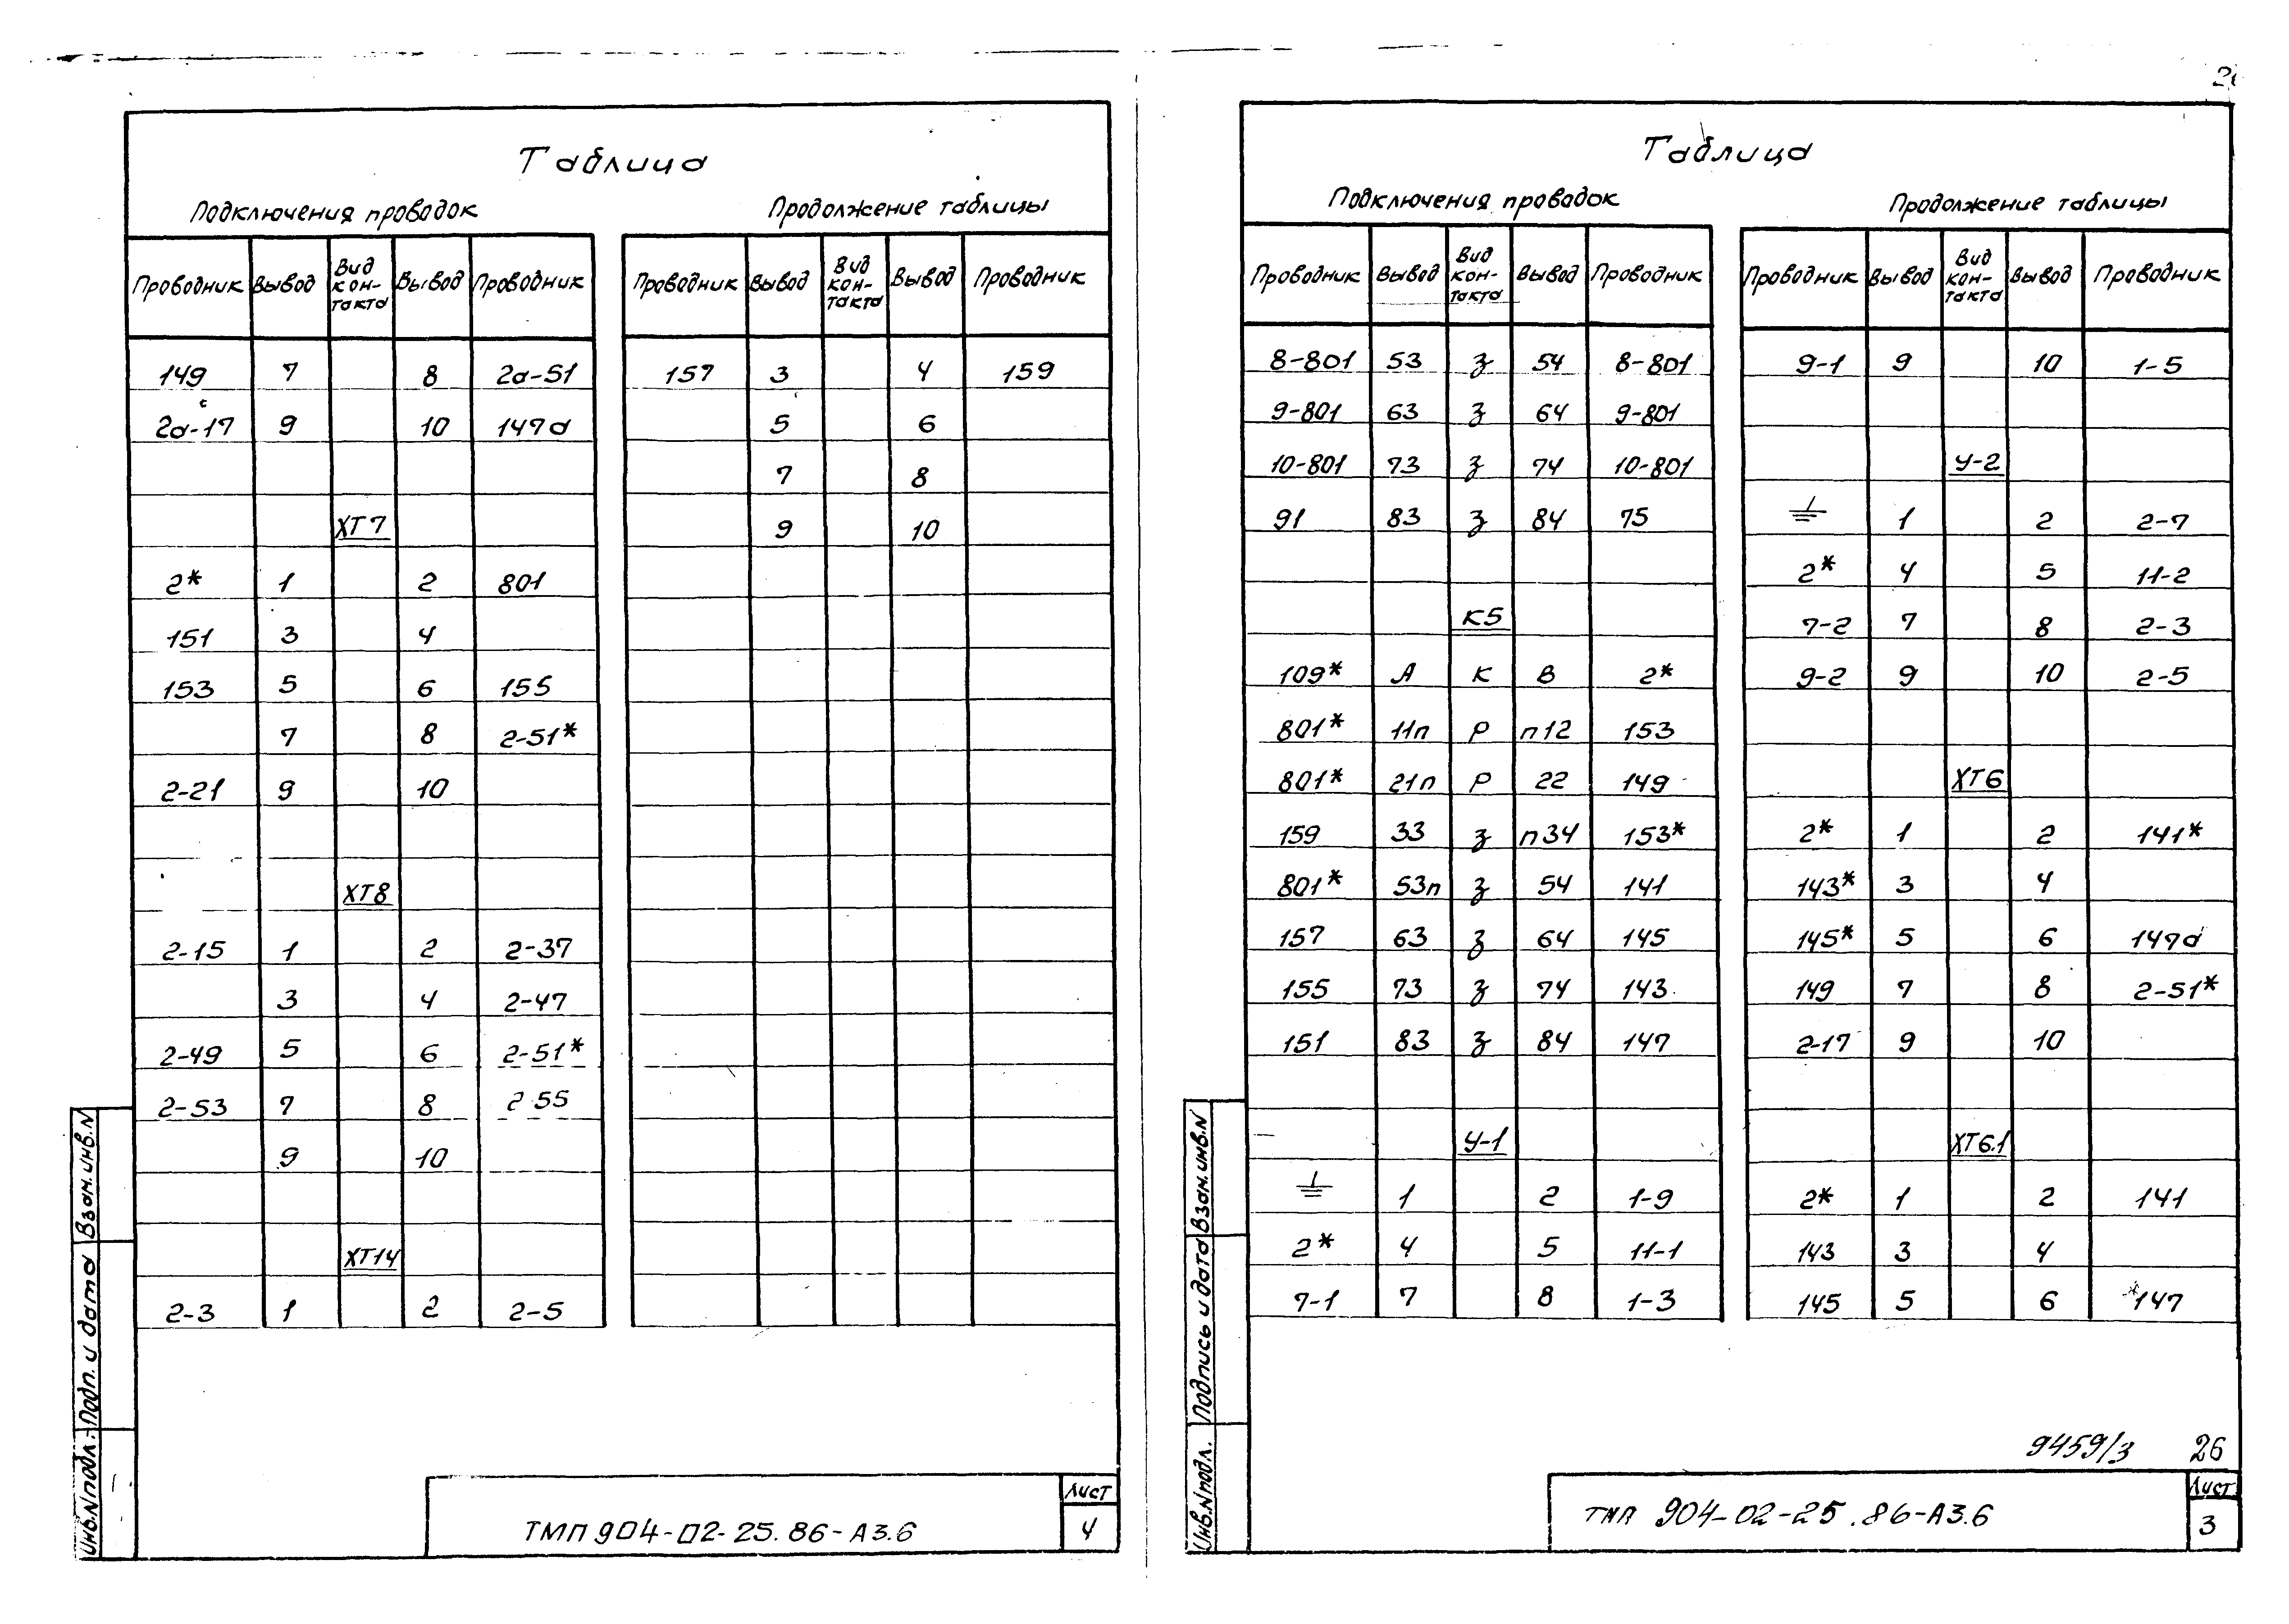 Таблица
Подключения проводок
Продолжение таблицы
Проводник Вывод Вид кон-такта Вывод Проводник
149 7 8 2а-51
2а-17 9 10 147а
ХТ7
2* 1 2 801
151 3 4
153 5 6 155
7 8 2-51*
2-21 9 10
ХТ8
2-15 1 2 2-37
3 4 2-47
2-49 5 6 2-51*
2-53 7 8 2 55
9 10
ХТ14
2-3 1 2 2-5
Проводник Вывод Вид кон-такта Вывод Проводник
157 3 4 159
5 6
7 8
9 10
Взам. инв. N
Подп. и дата
Инв. N подл.
ТМП 904-02-25.86-А3.6
Лист
4
Таблица
Подключения проводок
Продолжение таблицы
Проводник Вывод Вид кон-такта Вывод Проводник
8-801 53 з 54 8-801
9-801 63 з 64 9-801
10-801 73 з 74 10-801
91 83 з 84 75
К5
109* А К В 2*
801* 11п Р п12 153
801* 21п Р 22 149
159 33 з п34 153*
801* 53п з 54 141
157 63 з 64 145
155 73 з 74 143
151 83 з 84 147
У-1
⏚ 1 2 1-9
2* 4 5 11-1
7-1 7 8 1-3
Проводник Вывод Вид кон-такта Вывод Проводник
9-1 9 10 1-5
У-2
⏚ 1 2 2-7
2* 4 5 11-2
7-2 7 8 2-3
9-2 9 10 2-5
ХТ6
2* 1 2 141*
143* 3 4
145* 5 6 147а
149 7 8 2-51*
2-17 9 10
ХТ6.1
2* 1 2 141
143 3 4
145 5 6 147
Взам. инв. N
Подпись и дата
Инв. N подл.
9459/3 26
ТМП 904-02-25.86-А3.6
Лист
3